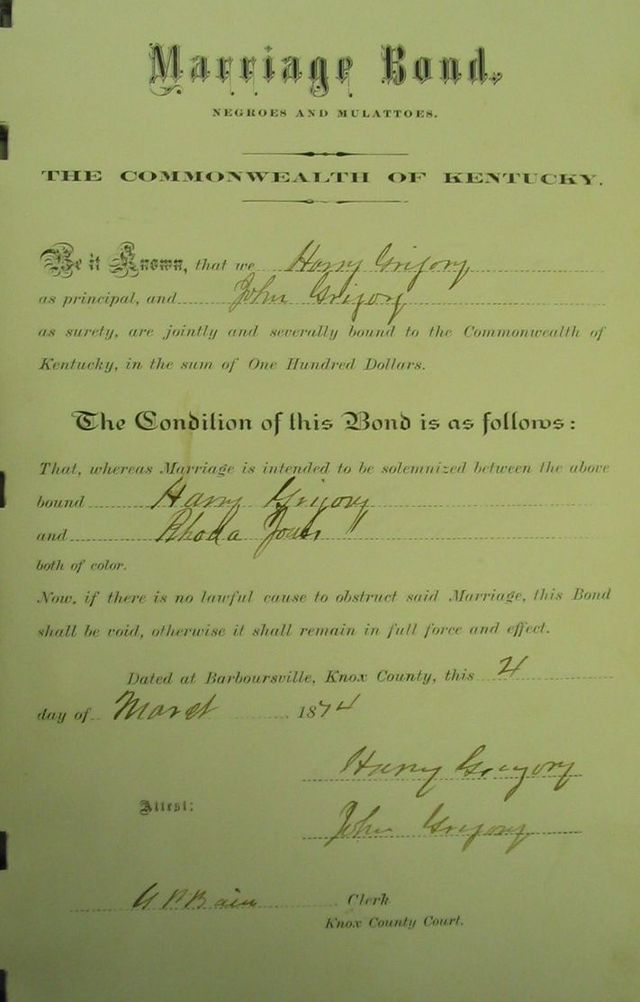 Marriage Bond.
NEGROES AND MULATTOES.
THE COMMONWEALTH OF KENTUCKY.
Be it Known, that we Harry Grigory
as principal, and John Grigory
as surety, are jointly and severally bound to the Commonwealth of
Kentucky, in the sum of One Hundred Dollars.
The Condition of this Bond is as follows:
That, whereas Marriage is intended to be solemnized between the above
bound Harry Grigory
and Rhoda
both of color.
Now, if there is no lawful cause to obstruct said Marriage, this Bond
shall be void, otherwise it shall remain in full force and effect.
Dated at Barboursville, Knox County, this
day of March 1874
Harry Gregory
Attest:
John Gregory
Bain Clerk
Knox County Court.